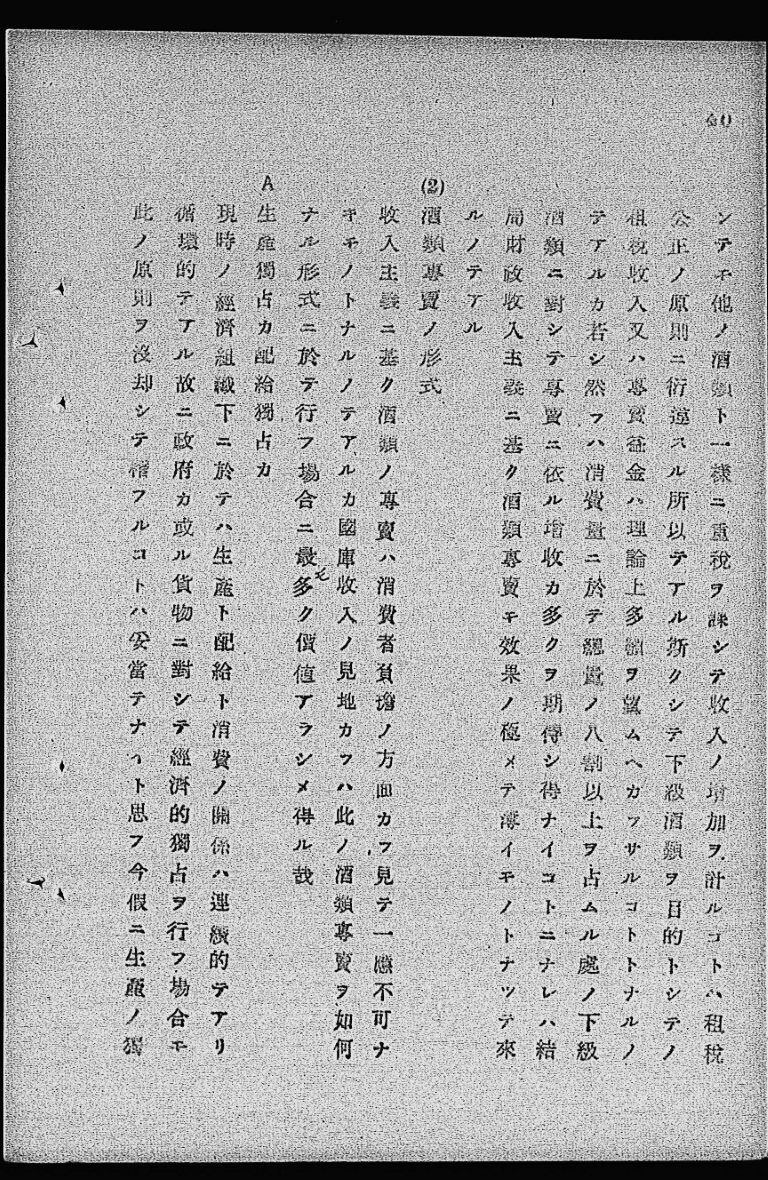 40
シテモ他ノ酒類ト一樣ニ重税ヲ課シテ收入ノ增加ヲ計ルコトハ租税
公正ノ原則ニ衍違スル所以テアル斯クシテ下級酒類ヲ目的トシテノ
租税收入又ハ專賣益金ハ理論上多額ヲ望ムヘカラサルコトトナルノ
テアルカ若シ然ラハ消費量ニ於テ總量ノ八割以上ヲ占ムル處ノ下級
酒類ニ對シテ專賣ニ依ル增收カ多クヲ期待シ得ナイコトニナレハ結
局財政收入主義ニ基ク酒類專賣モ效果ノ極メテ薄イモノトナツテ來
ルノテアル
(2) 酒類專賣ノ形式
收入主義ニ基ク酒類ノ專賣ハ消費者負擔ノ方面カラ見テ一應不可ナ
キモノトナルノテアルカ國庫收入ノ見地カラハ此ノ酒類專賣ヲ如何
ナル形式ニ於テ行フ場合ニ最モ多ク價値アラシメ得ル哉
A 生產獨占カ配給獨占カ
現時ノ經濟組織下ニ於テハ生產ト配給ト消費ノ關係ハ連續的テアリ
循環的テアル故ニ政府カ或ル貨物ニ對シテ經濟的獨占ヲ行フ場合モ
此ノ原則ヲ沒却シテ行フルコトハ妥當テナイト思フ今假ニ生產ノ獨